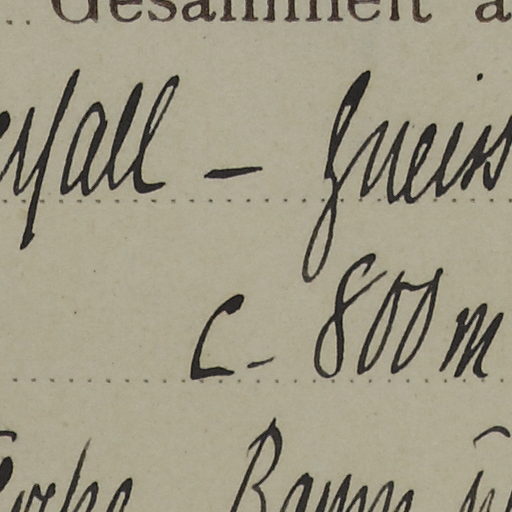 Gesammelt a
rfall – Gneiss
c. 800 m
Baum